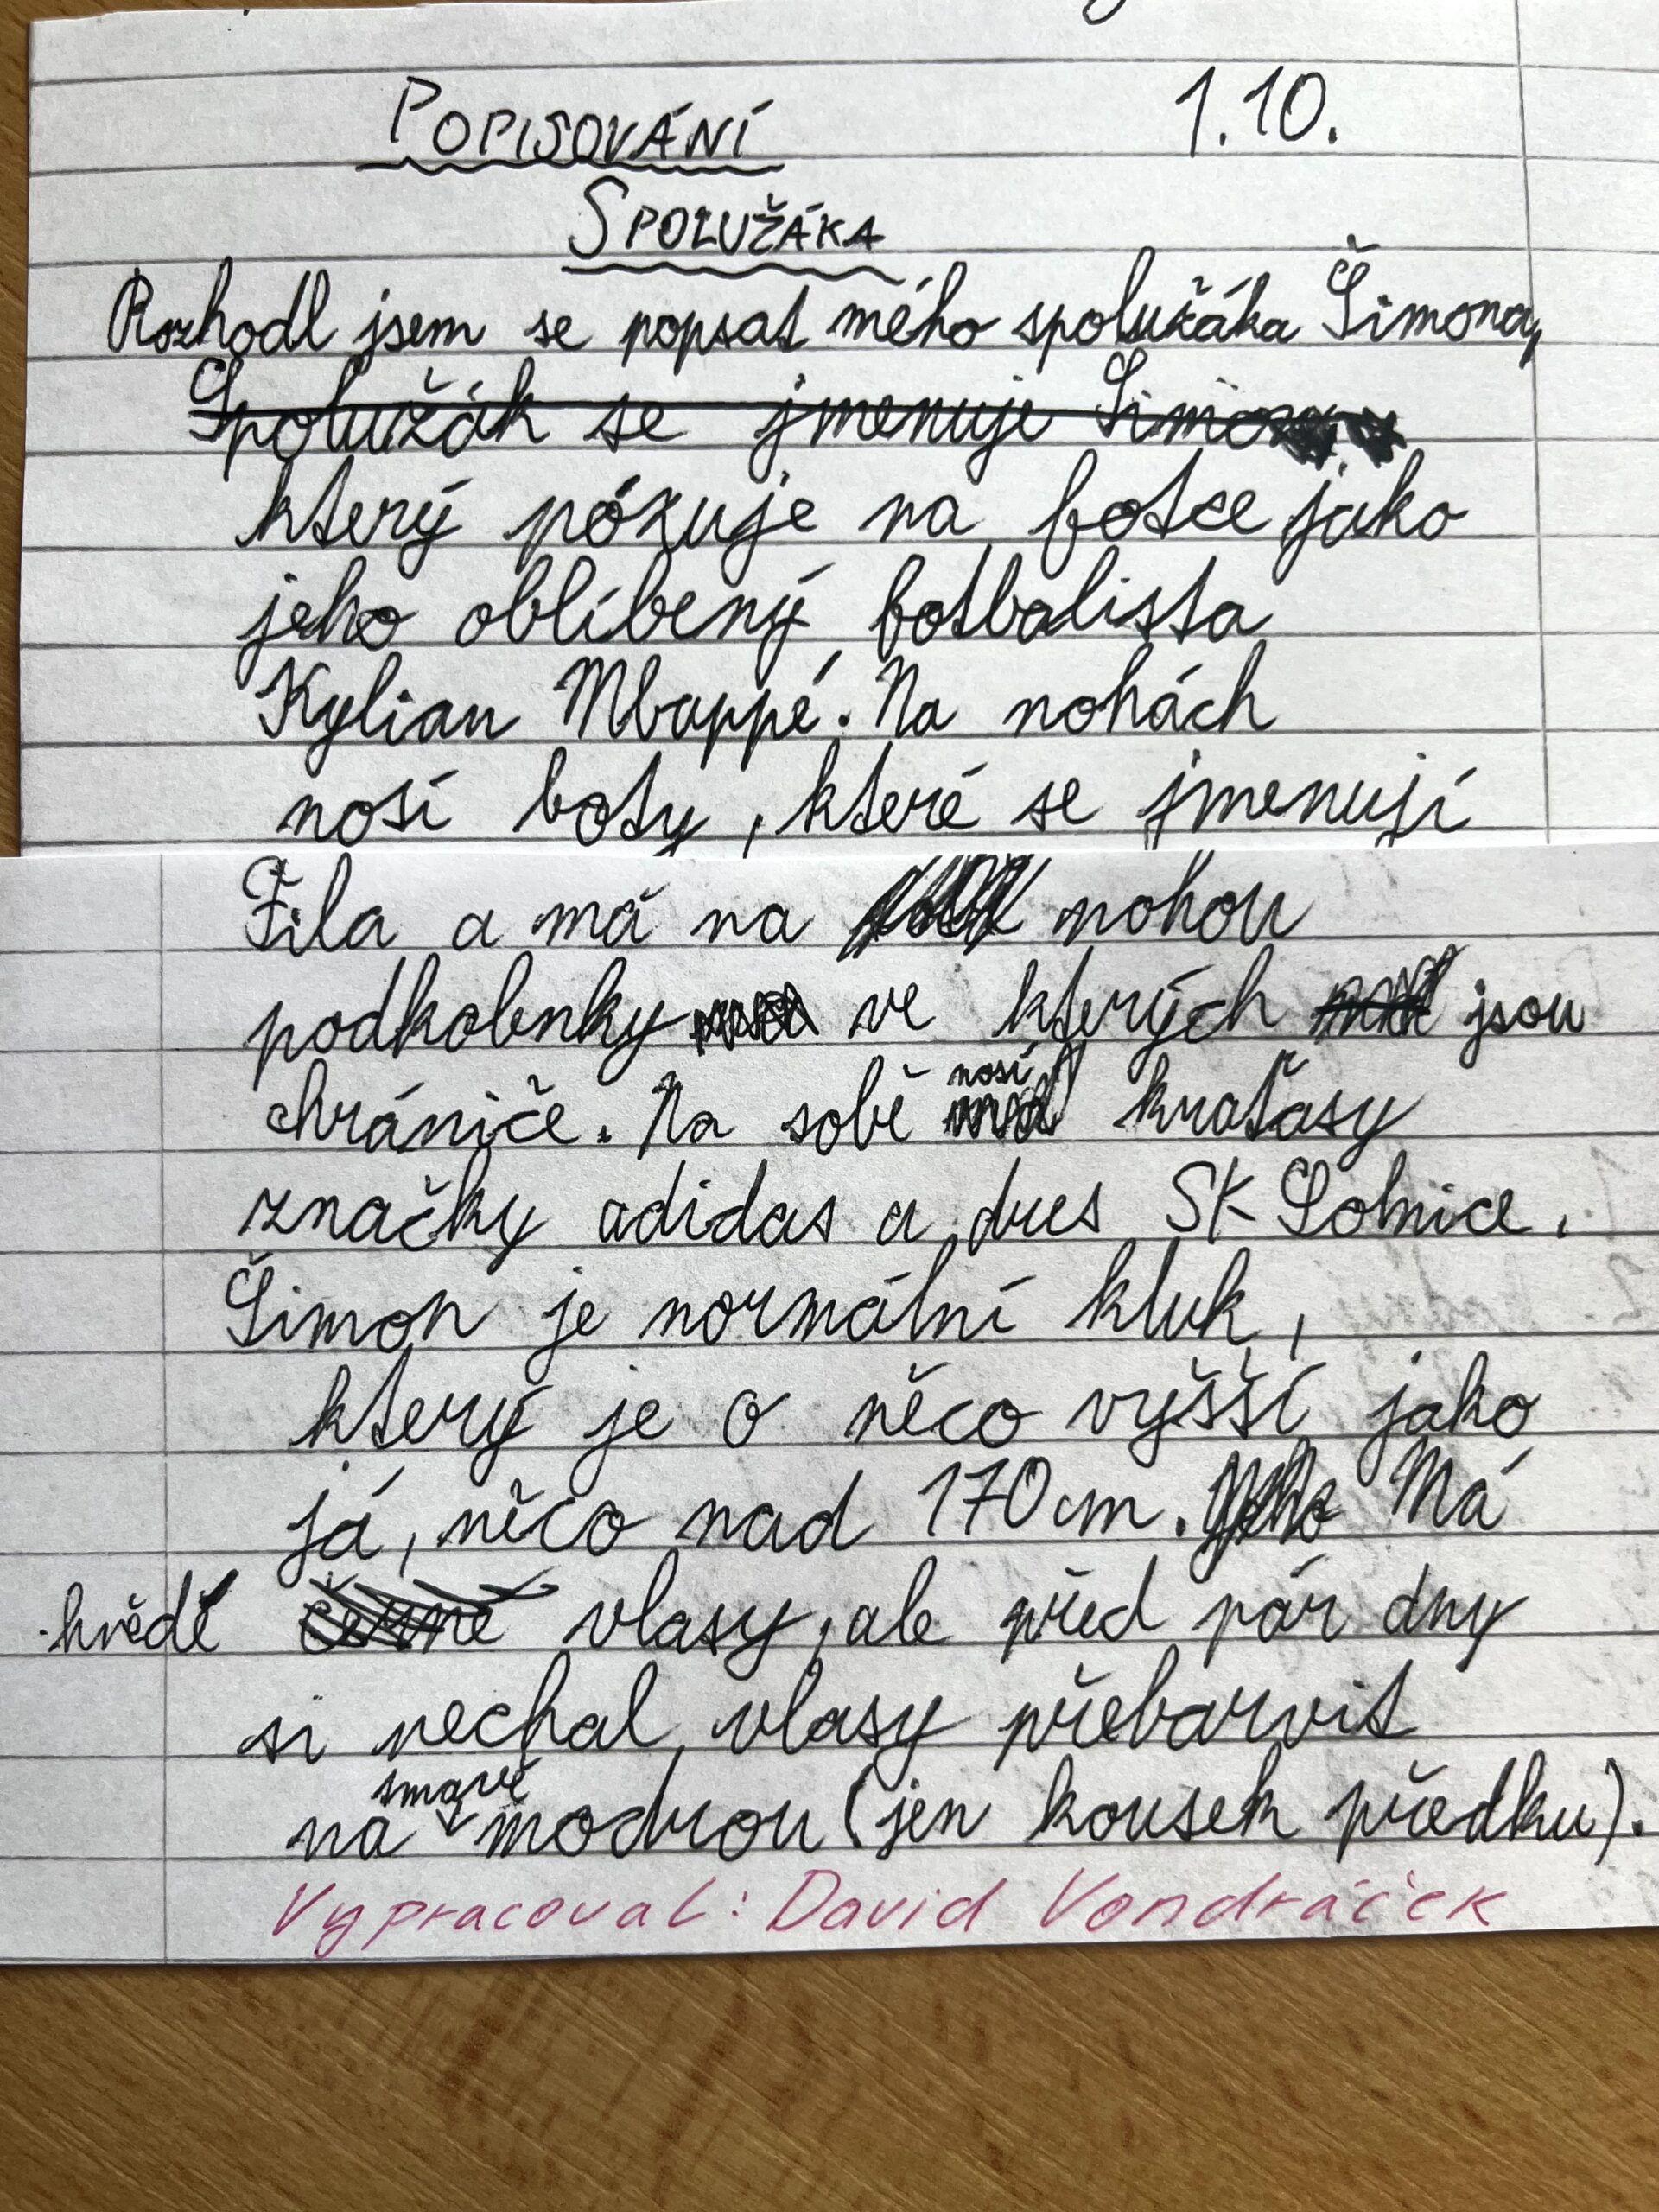 POPISOVÁNÍ 1.10.
SPOLUŽÁKA
Rozhodl jsem se popsat mého spolužáka Šimona,
Spolužák se jmenuje Šimon
který pózuje na fotce jako
jeho oblíbený fotbalista
Kylian Mbappé. Na nohách
nosí boty, které se jmenují
Fila a má na nohou
podkolenky ve kterých jsou
chrániče. Na sobě nosí kraťasy
značky adidas a dres SK Solnice.
Šimon je normální kluk,
který je o něco vyšší jako
já, něco nad 170cm. Má
hnědé černé vlasy, ale před pár dny
si nechal vlasy přebarvit
na smavě modrou (jen kousek předku).
Vypracoval: David Vondráček